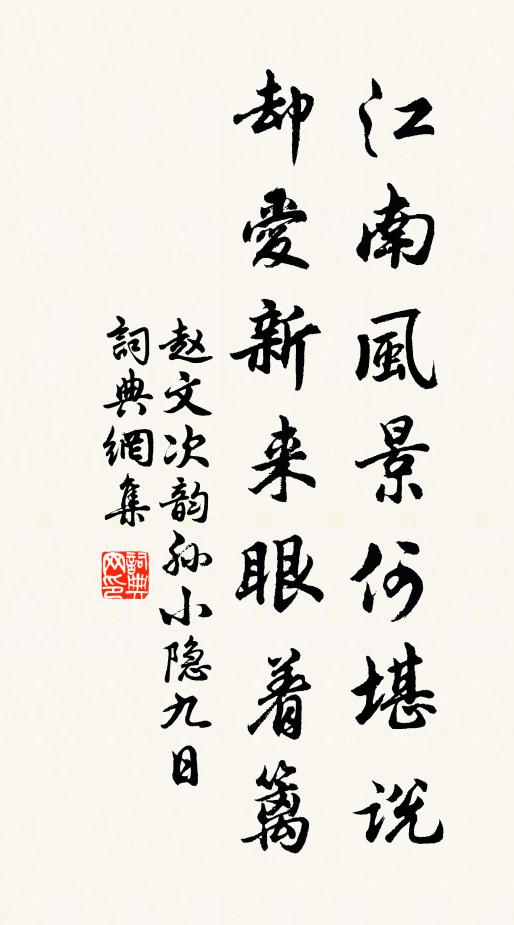 江南風景何堪説
却愛新来眼着籬
赵文次韵孙小隐九日
詞典網集
詞典网印